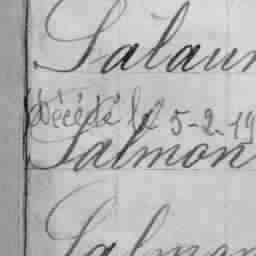 Salaun
Décédé le 5-2-19
Salmon
Salmon